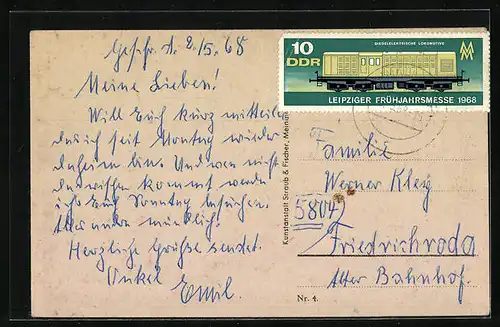 2/5.68
Meine Lieben!
Will Euch kurz mitteilen
das ich seit Montag wieder
daheim bin. Und wen nicht
dazwischen kommt werde
ich Euch Sonntag besuchen.
Alles andre mündlich.
Herzliche Grüße sendet
Onkel
Emil.
10
DDR
DIESELELEKTRISCHE LOKOMOTIVE
LEIPZIGER FRÜHJAHRSMESSE 1968
Kunstanstalt Straub & Fischer, Meiningen
Familie
Werner Kley
(5804)
Friedrichroda
Alter Bahnhof.
Nr. 4.